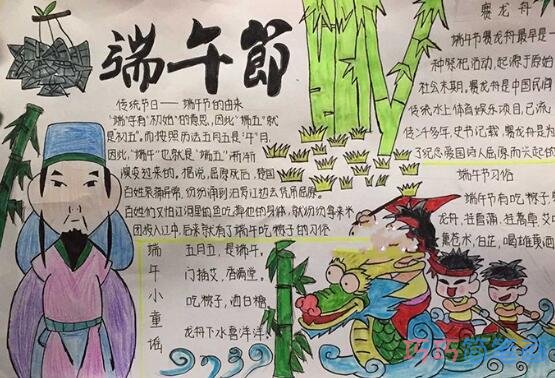 端午節
传统节日——端午节的由来
"端"字有"初始"的意思,因此"端五"就
是"初五"。而按照历法五月正是"午"月,
因此"端午"也就是"端五"渐渐
演变过来的。据说,屈原死后,楚国
百姓哀痛异常,纷纷涌到汨罗江边去凭吊屈原。
百姓们又怕江河里的鱼吃掉他的身体,就纷纷拿来米
团投入江中,后来就有了端午吃粽子的习俗
端午小童谣
五月五,是端午。
门插艾,香满堂。
吃粽子,洒白糖。
龙舟下水喜洋洋。
赛龙舟
端午节赛龙舟最早是一
种祭祀活动,起源于原始
社会末期,赛龙舟是中国民间
传统水上体育娱乐项目,已流
多年,史书记载,赛龙舟是为
了纪念爱国诗人屈原而兴起的
端午节习俗
端午节有吃粽子
龙舟,挂菖蒲,挂蒿草,艾
薰苍术,白芷,喝雄黄酒